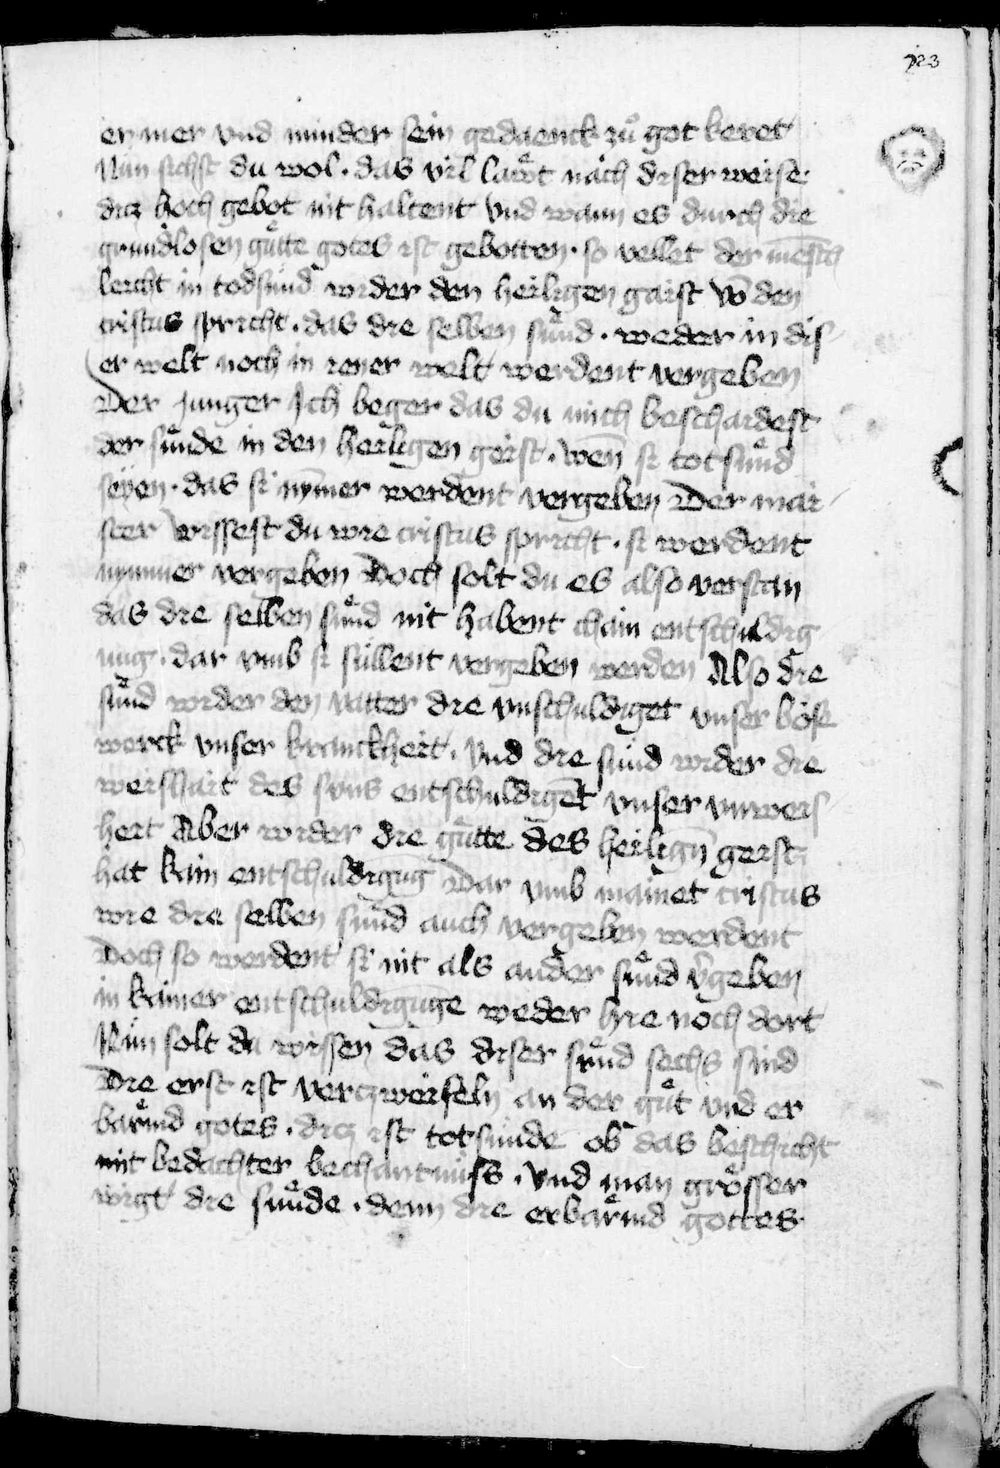 123
er mer vnd minder sein gedaenck zuͦ got keret
Nun sichst du wol · das vil laẘt nach diser weise
dicz hoch gebot nit haltent vnd wann es durch die
grundlosen guͤtte gotes ist gebotten · so vellet der mēsch
leicht in todsund wider den heiligen gaist võ den
cristus spricht · das die selben suͤnd · weder in dis
er welt noch in iener welt werdent vergeben
Der Junger Ich beger das du mich beschaidest
der suͤnde in den heiligen geist · wen̄ si tot suͤnd
seÿen · das si nym̄er werdent vergeben Der mai
ster wissest du wie cristus spricht · si werdent
nymmer vergeben Doch solt du es also verstan
das die selben suͤnd nit habent chain entschuldig
ung · dar vmb si süllent vergeben werden Also die
suͤnd wider den vatter die vnschuldiget vnser böse
werck vnser kranckheit · vnd die sünd wider die
weishait des suns entschuldigēt vnser vnweis
heit Aber wider die guͤtte des heilign̄ geist
hat kain entschuldigūg Dar vmb mainet cristus
wie die selben suͤnd auch vergeben werdent
Doch so werdent si nit als ander suͤnd v̾geben
in kainer entschuldigūge weder hie noch dort
Nun solt du wissen das diser suͤnd sechs sind
Die erst ist verczweifeln an der guͤt vnd er
baͤrmd gotes · dicz ist totsünde ob das beschicht
mit bedachter bechantnuͤss · vnd man groͤsser
wigt die suͤnde · denn die erbaͤrmd gottes